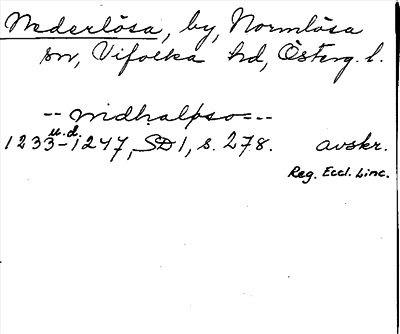 Nederlösa, by, Normlösa
sn, Vifolka hd, Österg. l.
-- nidhalþso --
u.d.
1233-1247, SD 1, s. 278. avskr.
Reg. Eccl. Linc.